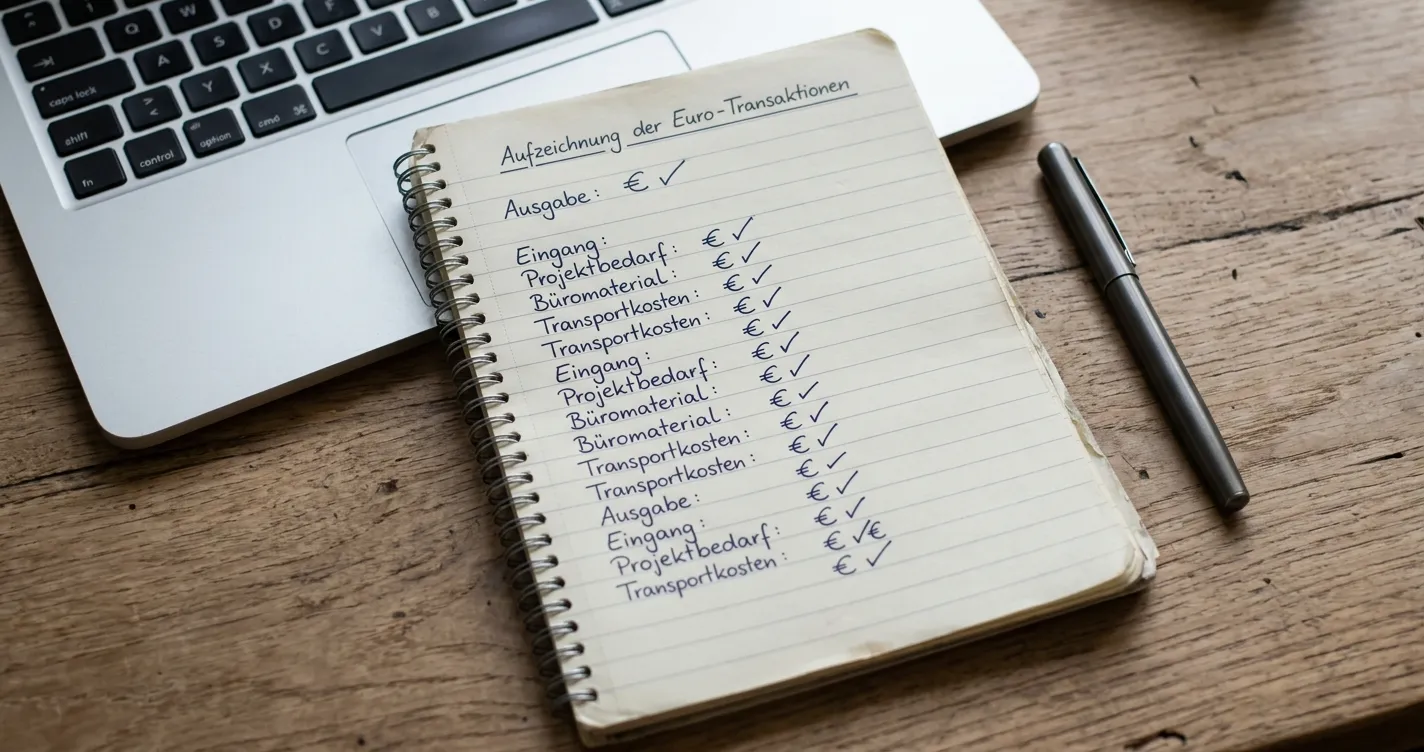 Q W D F G
A S X C V B
caps lock
> < Y
shift
fn control alt option cmd ⌘
Aufzeichnung der Euro-Transaktionen
Ausgabe: € ✓
Eingang: € ✓
Projektbedarf: € ✓
Büromaterial: € ✓
Transportkosten: € ✓
Transportkosten: € ✓
Eingang: € ✓
Projektbedarf: € ✓
Büromaterial: € ✓
Büromaterial: € ✓
Transportkosten: € ✓
Transportkosten: € ✓
Ausgabe: € ✓
Eingang: € ✓
Projektbedarf: € ✓€
Transportkosten: € ✓